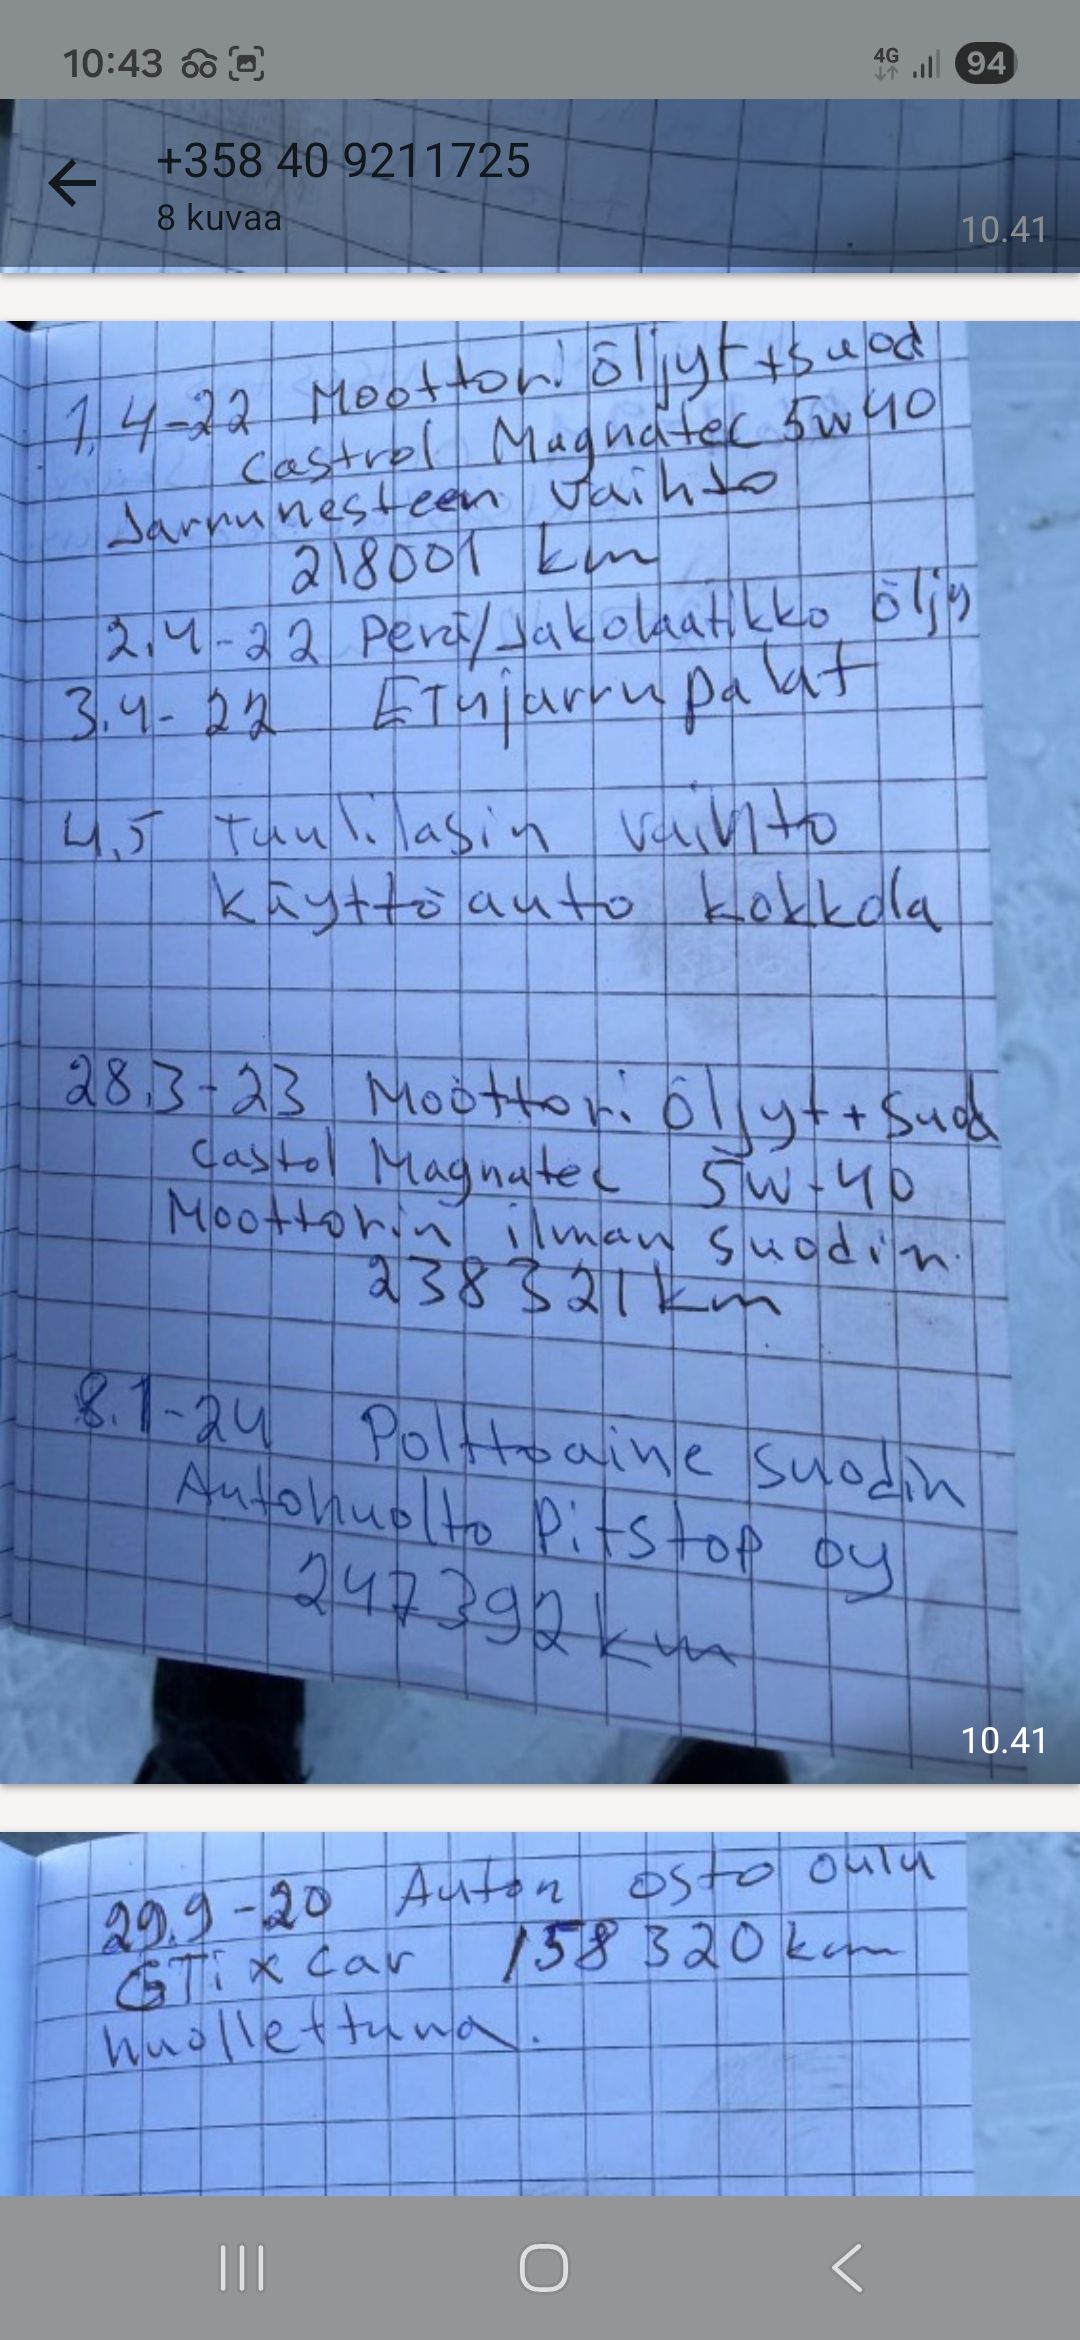 10:43
4G
94
+358 40 9211725
8 kuvaa
10.41
1.4-22 Moottori öljyt+suod
castrol Magnatec 5w40
Jarrunesteen vaihto
218001 km
2.4-22 Perä/Jakolaatikko öljy
3.4-22 ETujarrupalat
4.5 Tuulilasin vaihto
Käyttöauto kokkola
28.3-23 Moottori öljyt+suod
Castol Magnatec 5w-40
Moottorin ilman suodin
238321km
8.1-24 Polttoaine suodin
Autohuolto Pitstop oy
247392km
10.41
29.9-20 Auton osto oulu
GTi x car 158320km
huollettuna.